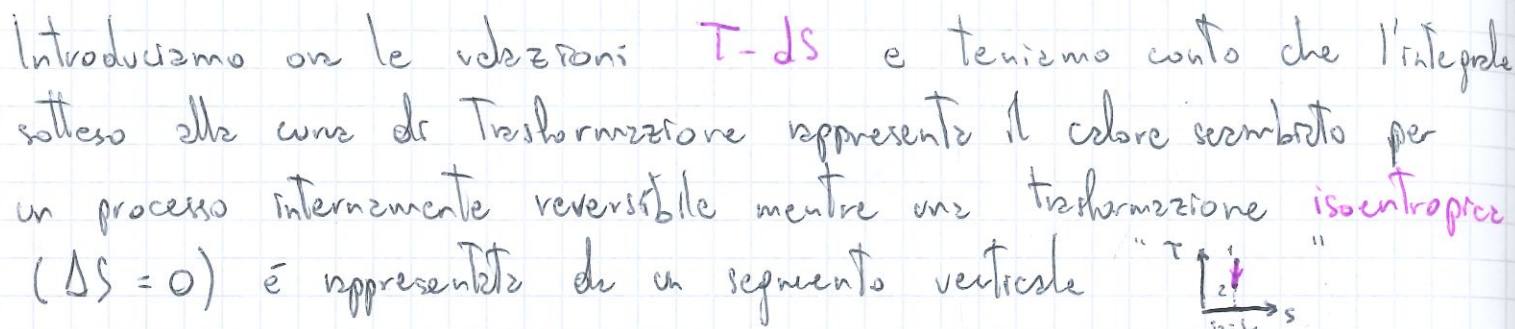 Introduciamo ora le relazioni T-dS e teniamo conto che l'integrale
sotteso alla curva di Trasformazione rappresenta il calore scambiato per
un processo internamente reversibile mentre una trasformazione isoentropica
(ΔS = 0) é rappresentata da un segmento verticale " T 1 2 S "